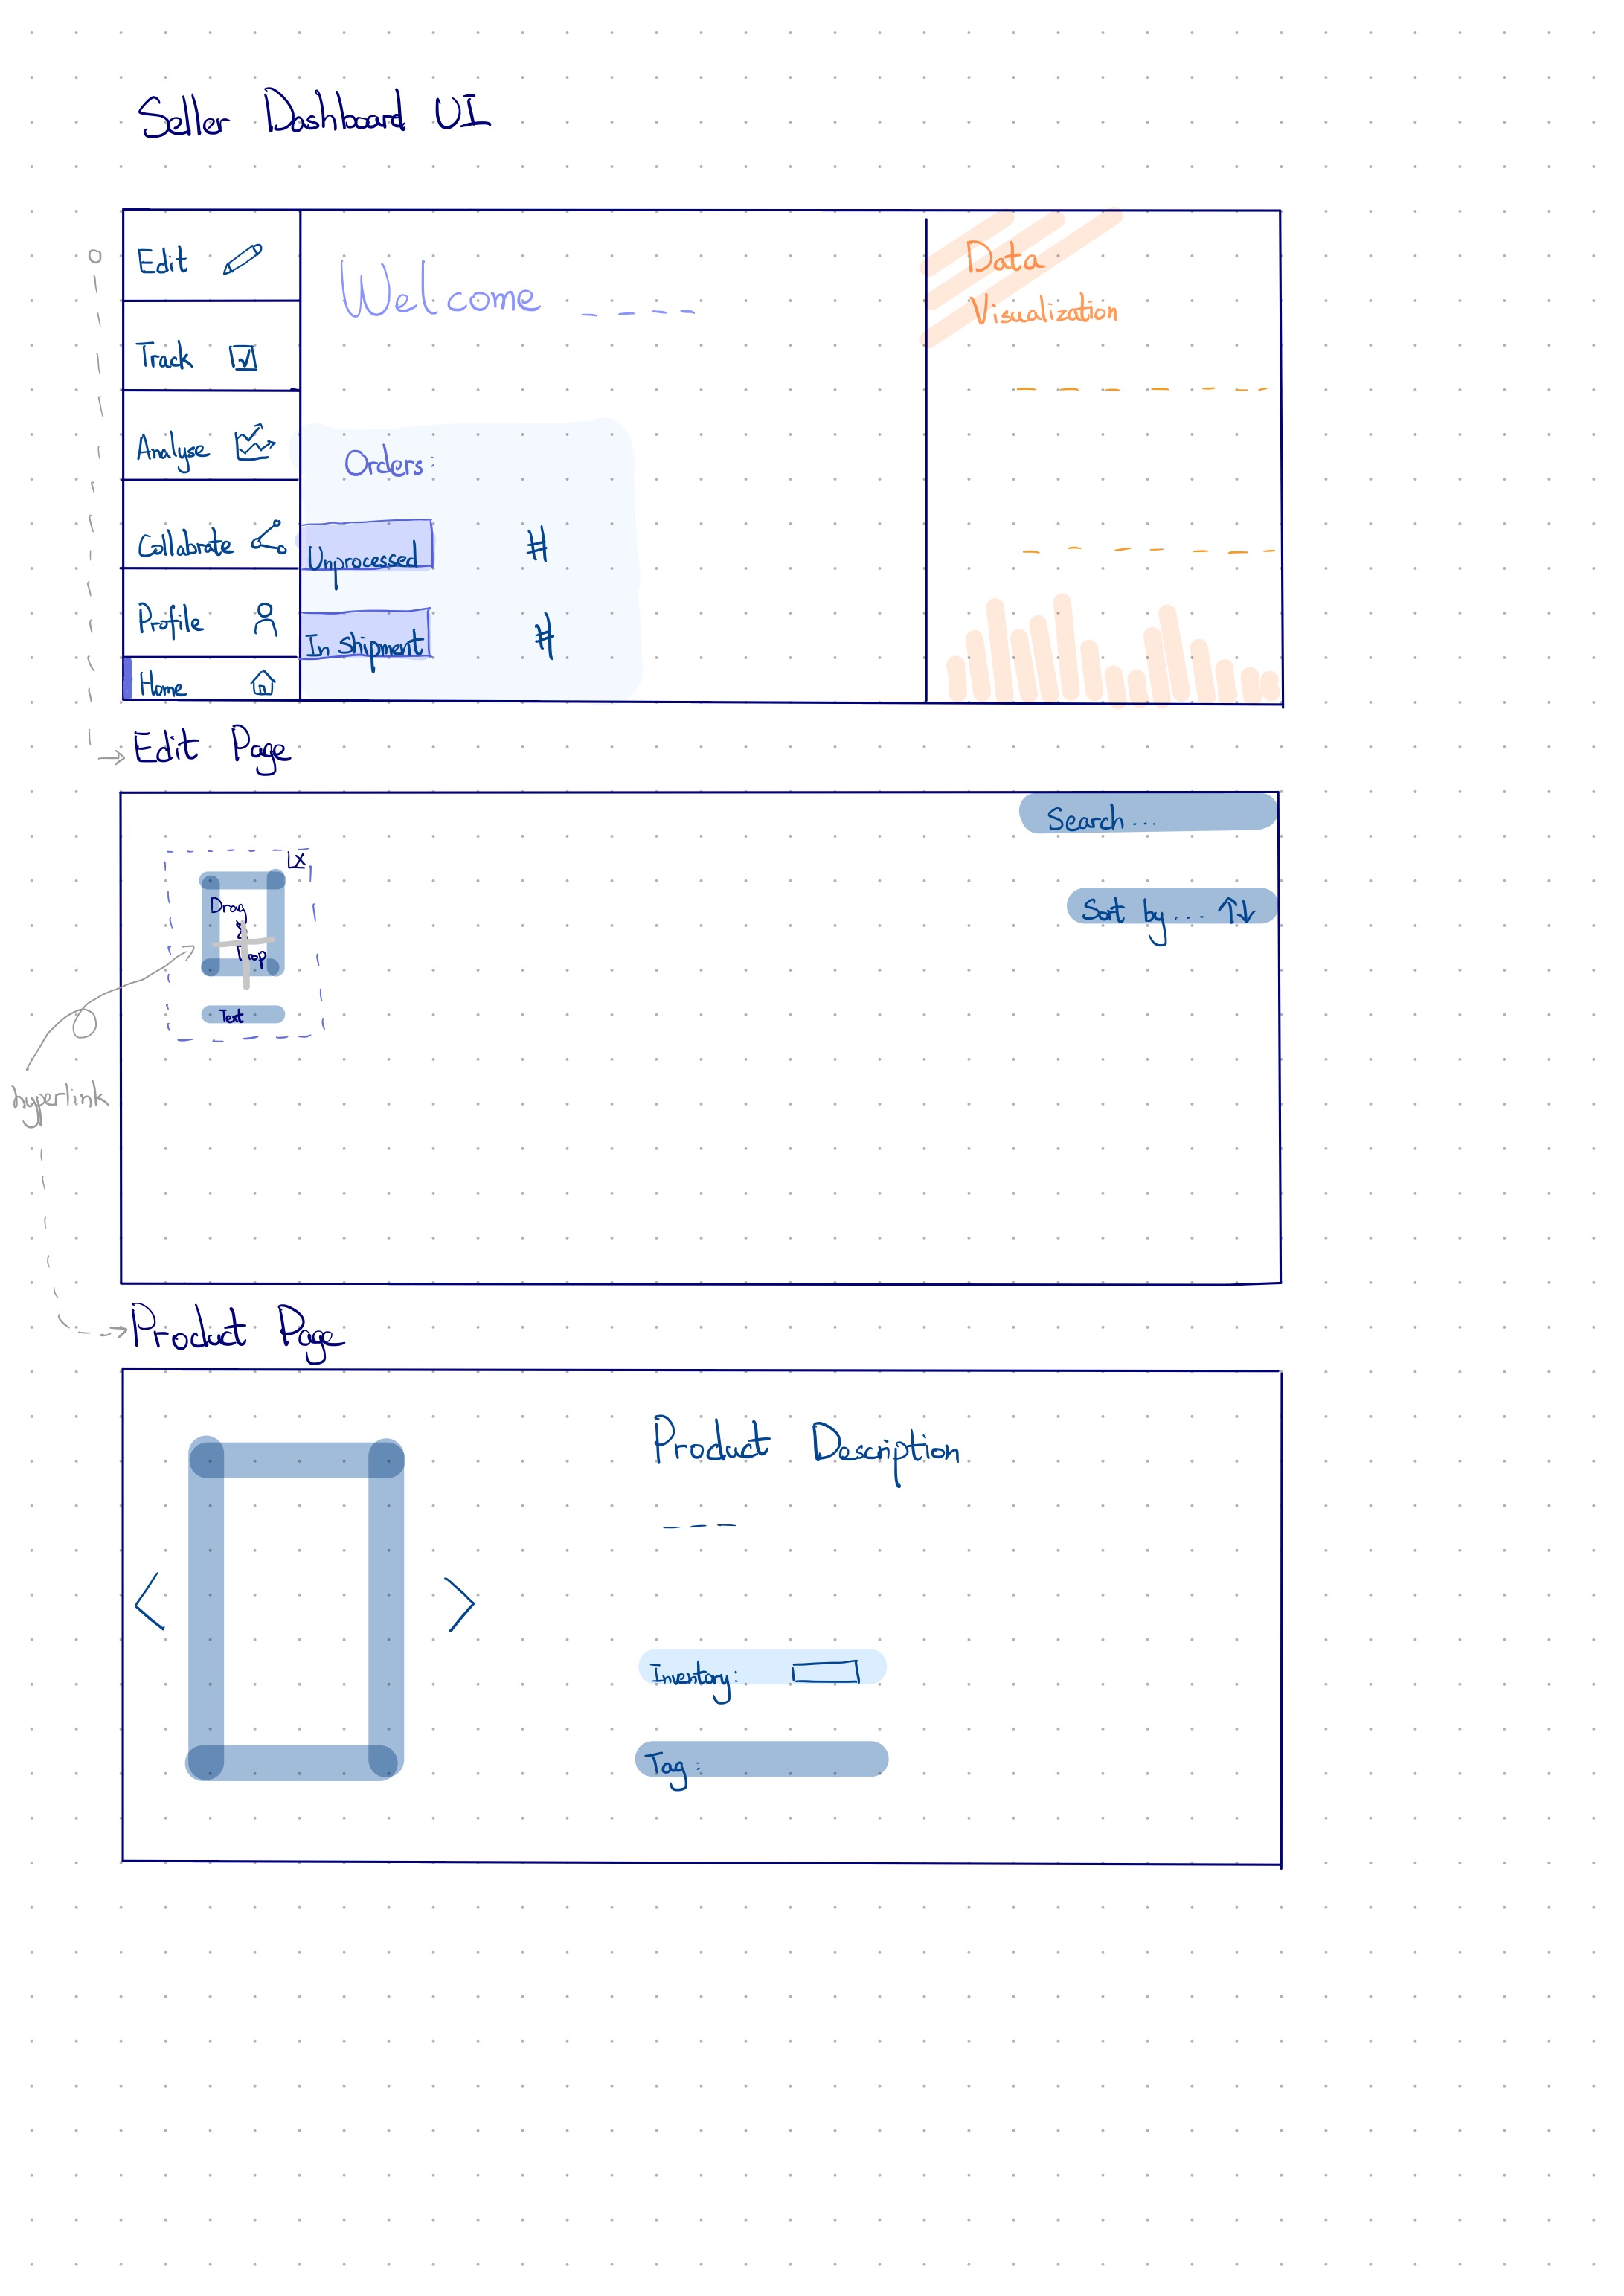 Seller Dashboard UI
Edit
Track
Analyse
Collabrate
Profile
Home
Welcome _ _ _ _
Orders:
Unprocessed #
In Shipment #
Data
Visualization
Edit Page
Search...
Sort by... ↑↓
Drag
&
Drop
Text
hyperlink
Product Page
<
>
Product Description
_ _ _
Inventory:
Tag: